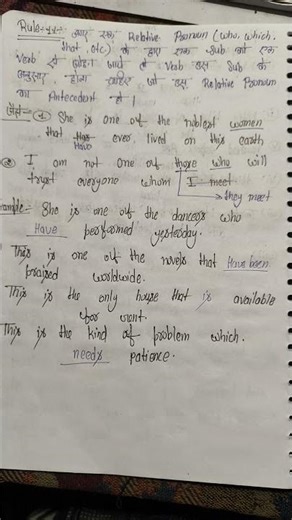 Rule-42:- जब एक Relative Pronoun (who, which,
that, etc) के द्वारा एक Sub को एक
Verb से जोड़ा जाये तो Verb उस Sub के
अनुसार होना चाहिए जो उस Relative Pronoun
का Antecedent हो।
जैसे- ① She is one of the noblest women
that Has ever lived on this earth
Have
② I am not one of those who will
trust everyone whom I meet
they meet
Example:- She is one of the dancers who
Have performed yesterday.
This is one of the novels that Have been
praised worldwide.
This is the only house that is available
for rent.
This is the kind of problem which.
needs patience.